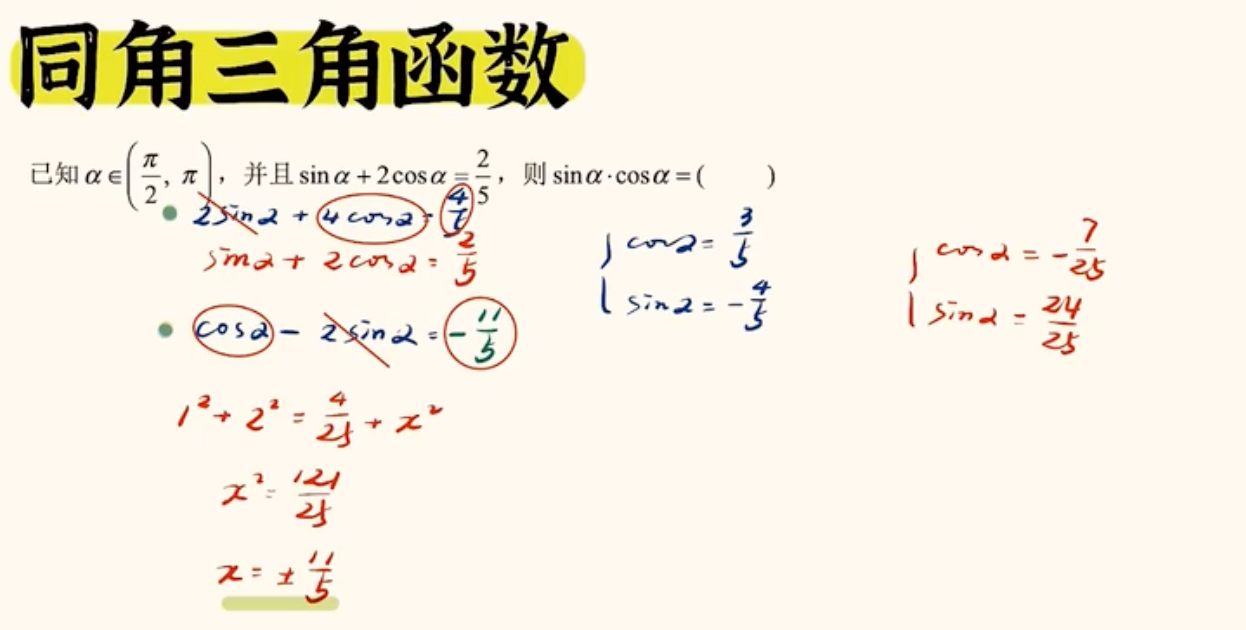 同角三角函数
已知 α∈(π/2, π)，并且 sinα+2cosα=2/5，则 sinα·cosα=(　　)
2sinα + 4cosα = 4/5
sinα + 2cosα = 2/5
cosα - 2sinα = -11/5
1²+ 2² = 4/25 + x²
x² = 121/25
x = ± 11/5
{ cosα = 3/5
sinα = -4/5
{ cosα = -7/25
sinα = 24/25